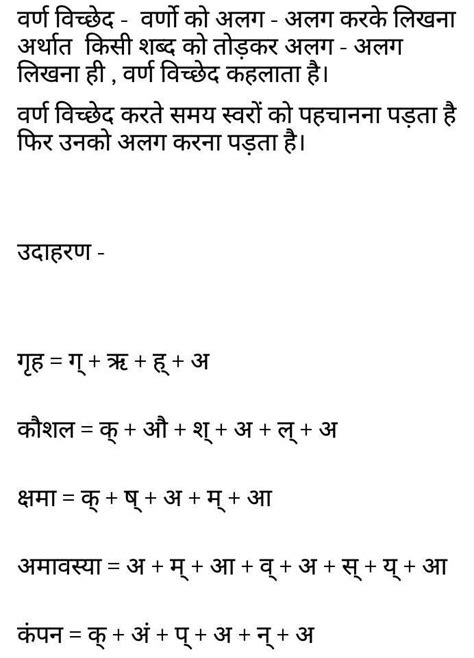 वर्ण विच्छेद - वर्णो को अलग - अलग करके लिखना
अर्थात किसी शब्द को तोड़कर अलग - अलग
लिखना ही , वर्ण विच्छेद कहलाता है।
वर्ण विच्छेद करते समय स्वरों को पहचानना पड़ता है
फिर उनको अलग करना पड़ता है।
उदाहरण -
गृह = ग् + ऋ + ह् + अ
कौशल = क् + औ + श् + अ + ल् + अ
क्षमा = क् + ष् + अ + म् + आ
अमावस्या = अ + म् + आ + व् + अ + स् + य् + आ
कंपन = क् + अं + प् + अ + न् + अ